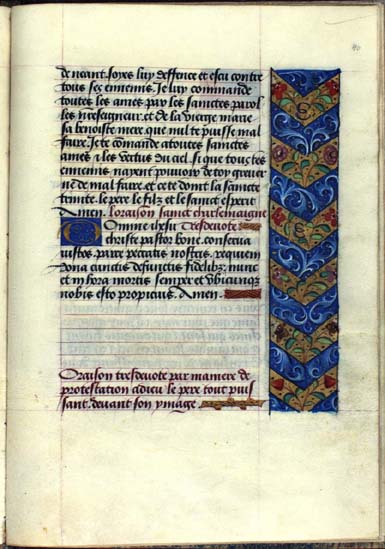 40
de neant. soyes luy deffence et escu contre
tous ses ennemis. Je luy commande
toutes les ames par les sainctes parol
les nreseigneur. et de la vierge marie
sa benoiste mere que nul te puisse mal
faire. Je te comande a toutes sainctes
ames & les vertus du ciel. si que tous tes
ennemis. nayent pouvoir de toy grever
ne de mal faire. et ce te doint la saincte
trinite. le pere le filz. et le sainct esperit
Amen. loraison sainct charlemaigne
Domine ihesu tresdevote
christe pastor bone. conserva
iustos. parce peccatis nostris. requiem
dona cunctis defunctis fidelibz. nunc
et in hora mortis semper et ubicunque
nobis esto propicius. Amen.
Oraison tresdevote par maniere de
protestation a dieu le pere tout puis
sant. devant son ymage